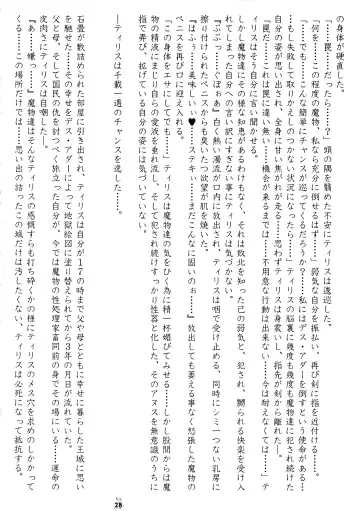 の身体が硬直した。
「――罠……だったら……？」頭の隅を翳めた不安にティリスは逡巡した。
「何を……この程度の魔物、私なら充分に倒せるはず……」弱気な自分を振払い、再び剣に指を近付ける――。
「――でも……こんな簡単にチャンスが巡ってくるだろうか？……私にはデス・アダーを倒すという使命がある……
もしも失敗して取りかえしのつかない状況になったら……」ティリスの脳裏に幾度も幾度も魔物達に犯され続けた
自分の姿が思い出され、全身に甘い焦れが走る……思わずティリスは身震いし、指先が剣から離れた――。
「罠だ……これは罠に違い無い……機会が来るまでは……不用意な行動は出来ない……今は耐えなくては……」テ
ィリスはそう自分に言い聞かせる。
しかし魔物達にそのような知恵があるわけもなく、それは敗北を知った己の弱気と、犯され、嬲られる快楽を受け
入れてしまった自分への言い訳にすぎない事にティリスは気づかない。
『ぶぶっ……ぐぽぁぁ』白く熱い濁流が口内に放出され、ティリスは咽で受け止める。同時にシミ一つない乳房に
擦り付けられたペニスからも臭いたつ欲望が肌を焼いた。
『はふぅ……美味しいぃ♥……ステキぃ……まだこんなに固いのぉ』放出しても萎える事なく怒張し続ける魔物の
ペニスを再び口に迎え入れる。
「この身体をエサにしてでも……」ティリスは魔物達の気をひく為に精一杯媚びてみせる……しかし股間からは魔
物の精液にまじって自らの愛液を垂れ流し、そして犯され続けすっかり性器と化した、そのアヌスを無意識のうちに
指で弄び、拡げている自分の姿には気づいていない。
――ティリスは千載一遇のチャンスを逸した……。
石畳が敷詰められた部屋に引き出され、ティリスは自分が１７の時まで父や母とともに幸せに暮らした王城に思い
を馳せた……その幸せをデス・アダーによって地獄絵図に塗り替えられてから３年の月日が流れていた。
父、母、そして国民の仇を討つ為に旅立った自分が、今では魔物の性処理家畜同前の身でその場にいる……運命の
皮肉さにティリスは自嘲した――。
『あっ……嫌っ……』魔物達はそんなティリスの感慨すらも打ち砕くかの様にティリスのメス穴を求めのしかかって
くる……この場所だけでは……思い出の詰まったこの城だけは汚したくない、ティリスは必死になって抵抗する。
28